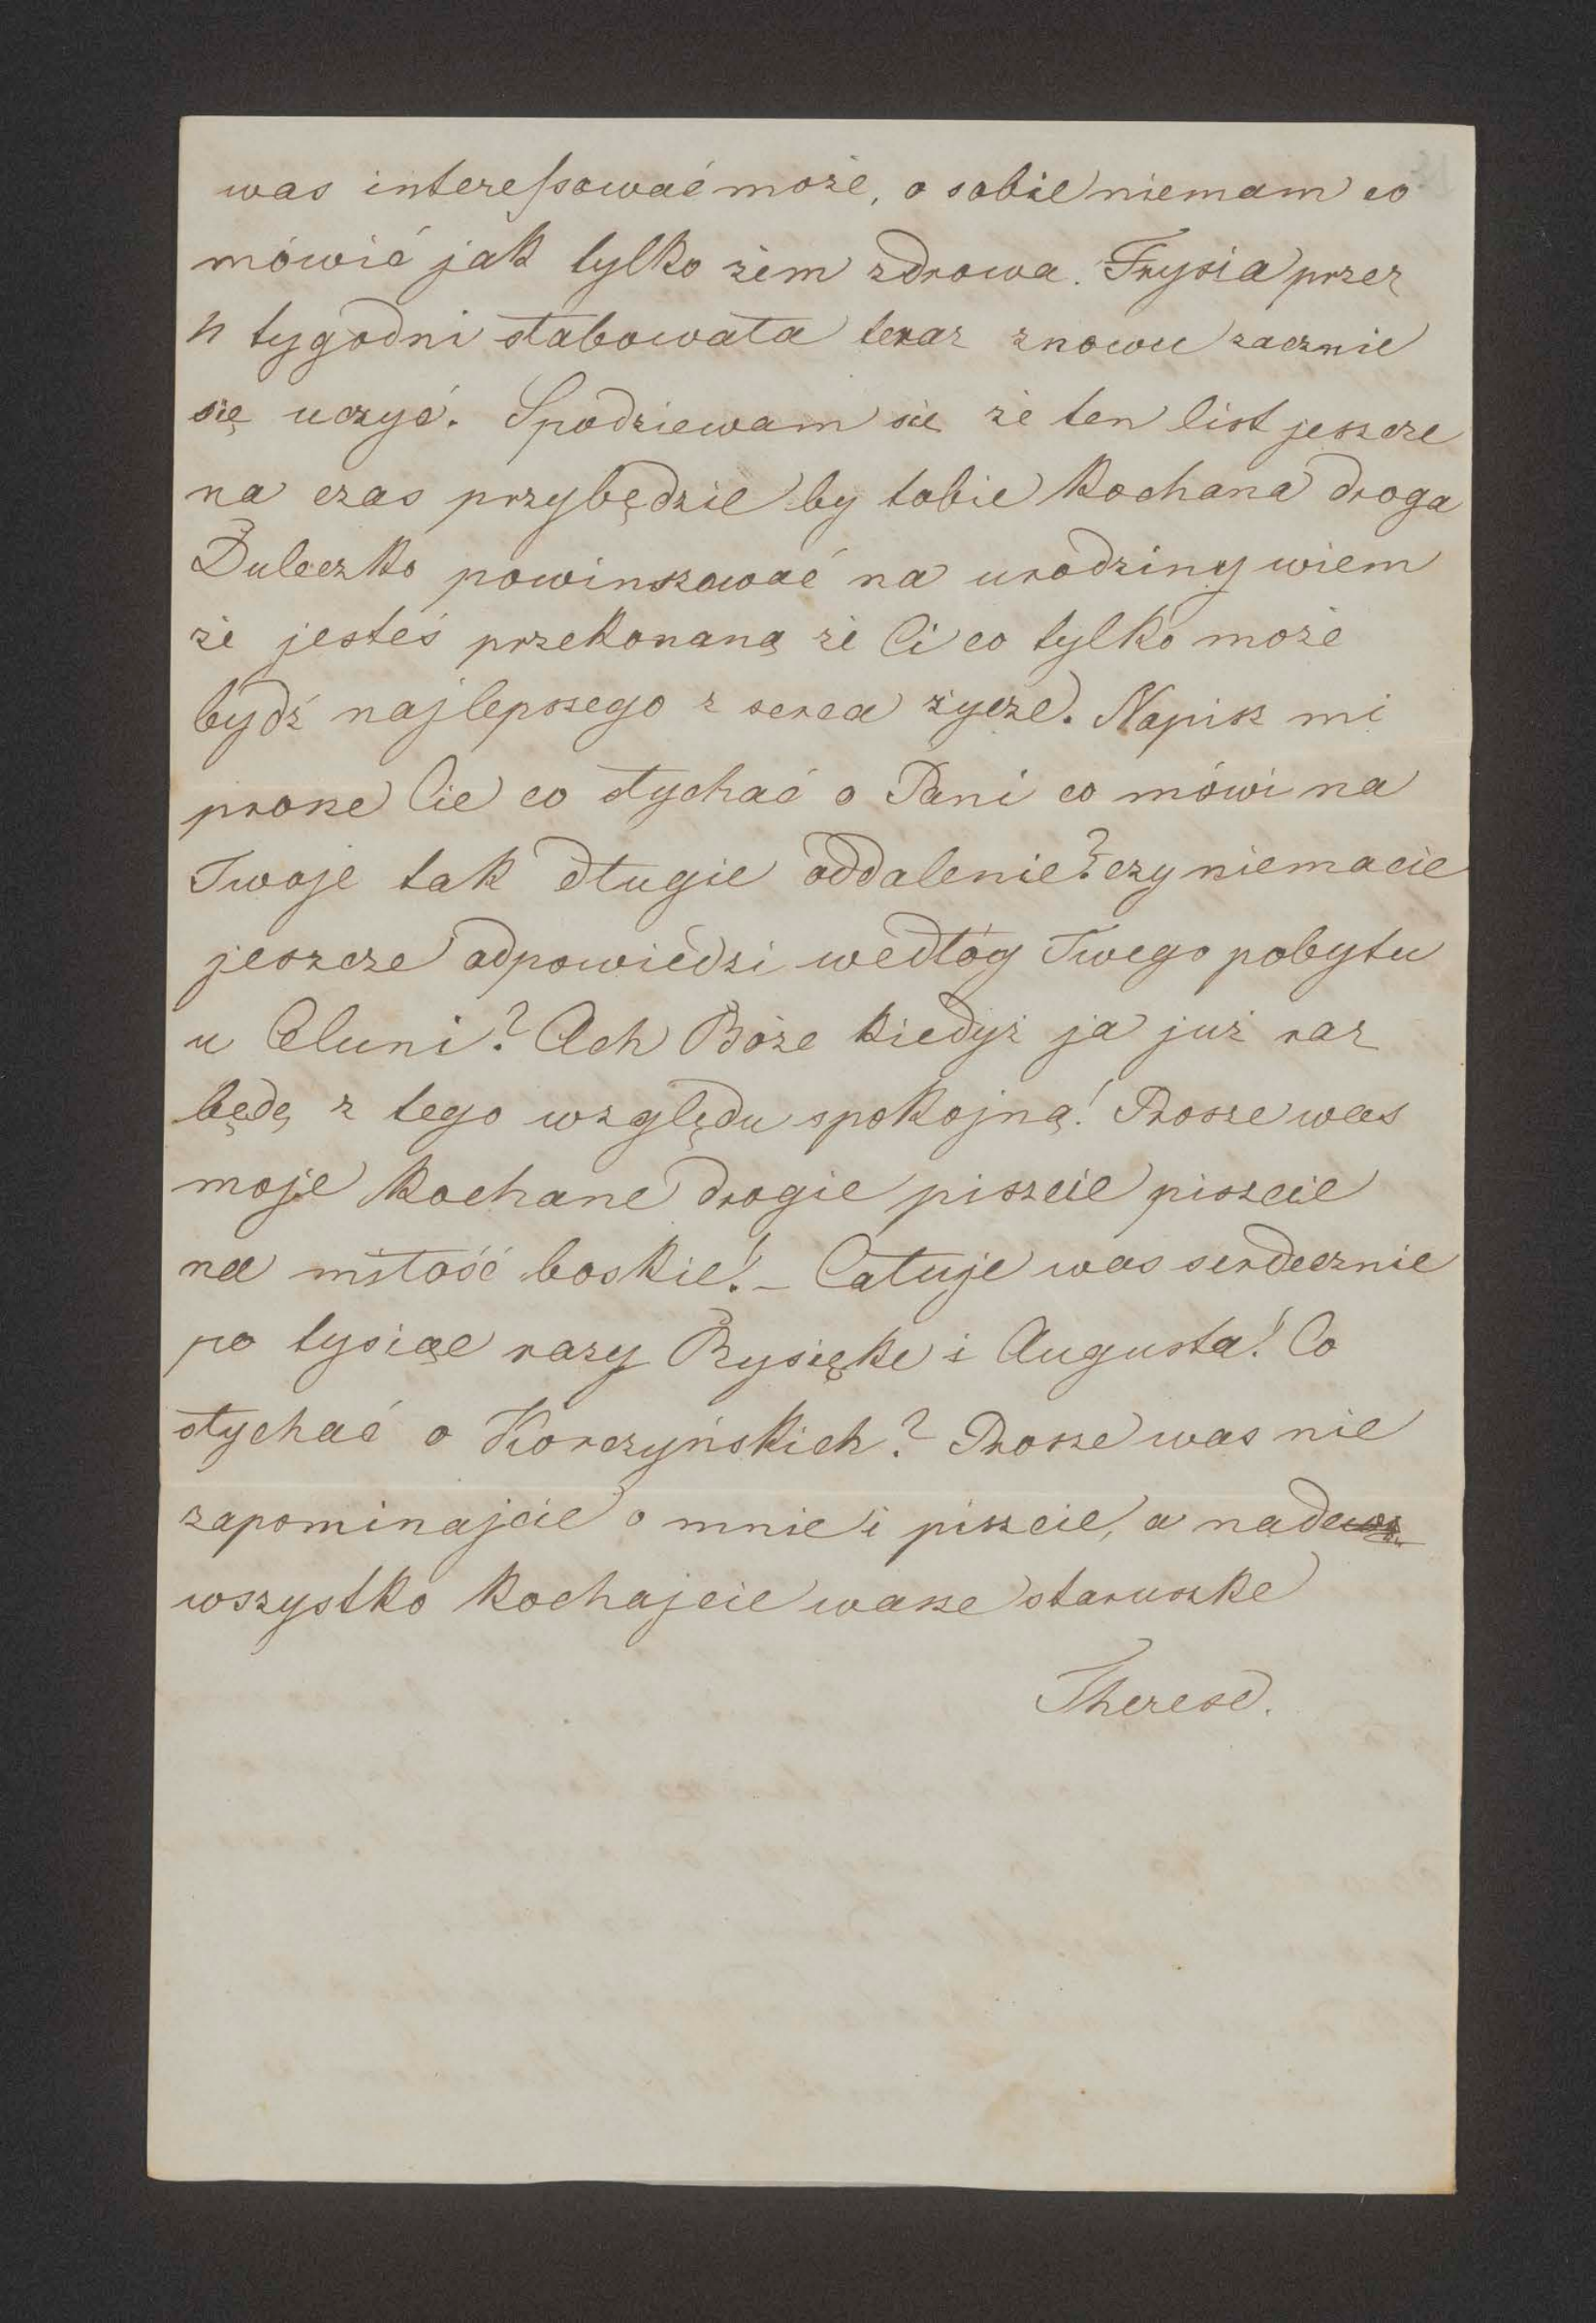 was interessować może, o sobie niemam co
mówić jak tylko żem zdrowa. Frysia przez
4 tygodni słabowała teraz znowu zacznie
się uczyć. Spodziewam sie że ten list jeszcze
na czas przybędzie by tobie kochana droga
Duleczko powinszować na urodziny wiem
że jesteś przekonaną że Ci co tylko może
bydź najlepszego z serca życze. Napisz mi
prosze Cie co słychać o Pani co mówi na
Twoje tak długie oddalenie? czy niemacie
jeszcze odpowiedzi wedłóg Twego pobytu
u Celuni? Ach Boże kiedyż ja już raz
będę z tego względu spokojną! Prosze was
moje kochane drogie piszcie piszcie
na miłość boskie! – Całuje was serdecznie
po tysiąc razy Rysięke i Augusta! Co
słychać o Korczyńskich? Prosze was nie
zapominajcie o mnie i piszcie, a nade
wszystko kochajcie wasze staruszke
Therese.